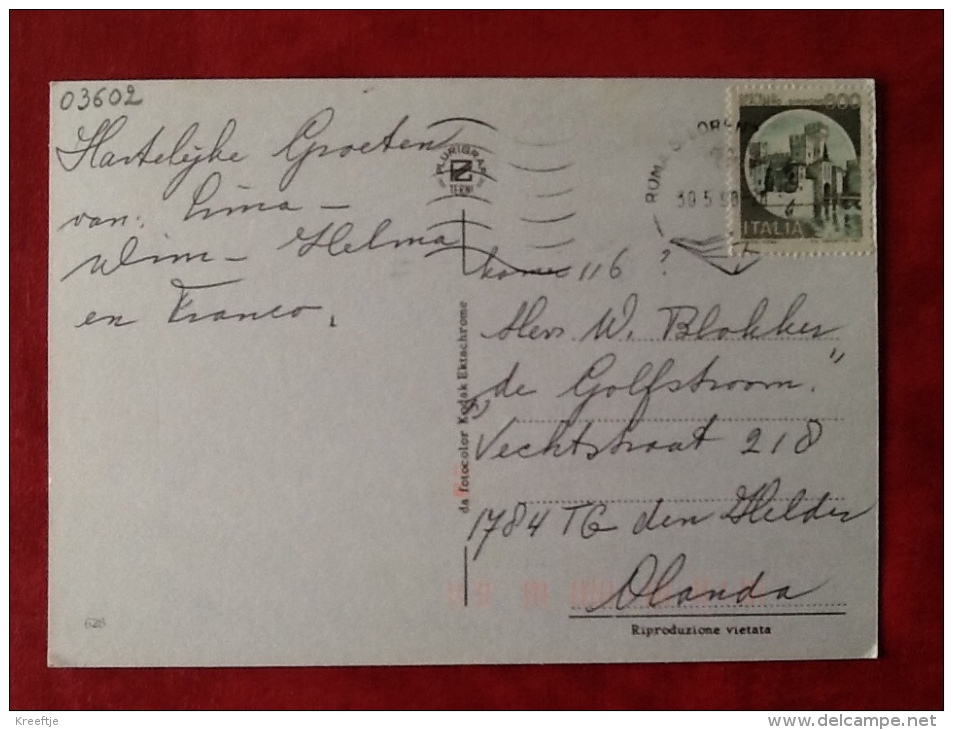 03602
Hartelijke Groeten
van: Lima -
Wim - Helma
en Franco.
PLURIGRAF
TERNI
da fotocolor Kodak Ektachrome
628
ROMA
30.5
ITALIA
kamer 116 ?
Herr W. Blokker
"de Golfstroom."
Vechtstraat 218
1784 TG den Helder
Olanda
Riproduzione vietata
Kreeftje
delcampe.net